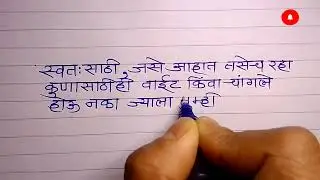 स्वतःसाठी, जसे आहात तसेच रहा
कुणासाठीही वाईट किंवा चांगले
होऊ नका ज्याला तुम्ही